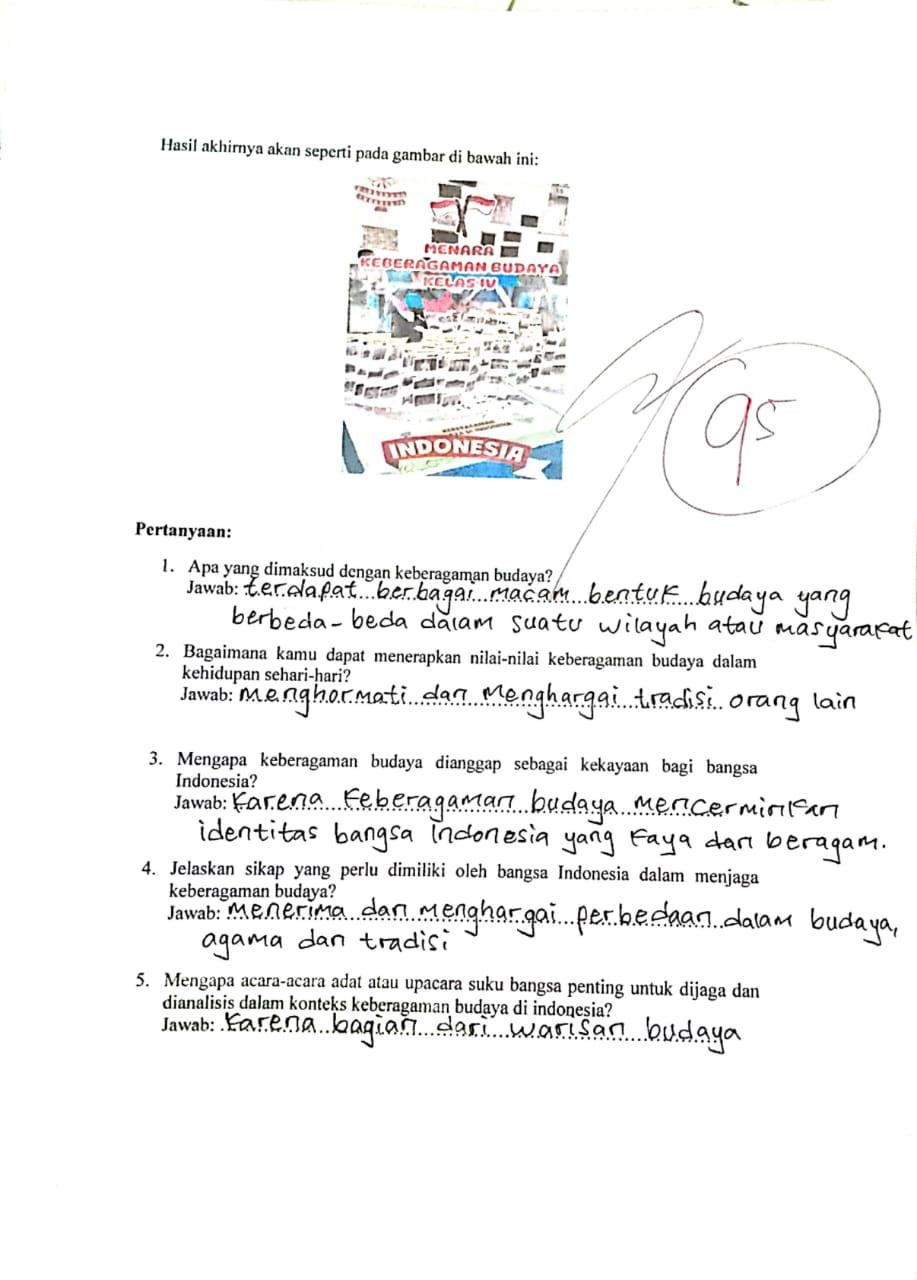 Hasil akhirnya akan seperti pada gambar di bawah ini:
MENARA
KEBERAGAMAN BUDAYA
KELAS IV
INDONESIA
95
Pertanyaan:
1. Apa yang dimaksud dengan keberagaman budaya?
Jawab: terdapat berbagai macam bentuk budaya yang
berbeda-beda dalam suatu wilayah atau masyarakat
2. Bagaimana kamu dapat menerapkan nilai-nilai keberagaman budaya dalam
kehidupan sehari-hari?
Jawab: menghormati dan menghargai tradisi orang lain
3. Mengapa keberagaman budaya dianggap sebagai kekayaan bagi bangsa
Indonesia?
Jawab: Karena keberagaman budaya mencerminkan
identitas bangsa Indonesia yang kaya dan beragam.
4. Jelaskan sikap yang perlu dimiliki oleh bangsa Indonesia dalam menjaga
keberagaman budaya?
Jawab: menerima dan menghargai perbedaan dalam budaya,
agama dan tradisi
5. Mengapa acara-acara adat atau upacara suku bangsa penting untuk dijaga dan
dianalisis dalam konteks keberagaman budaya di indonesia?
Jawab: Karena bagian dari warisan budaya